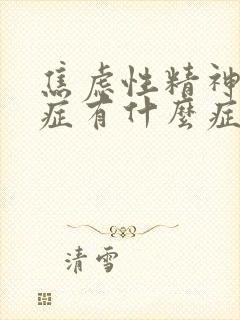 焦虑性精神
症有什麼症
清雪